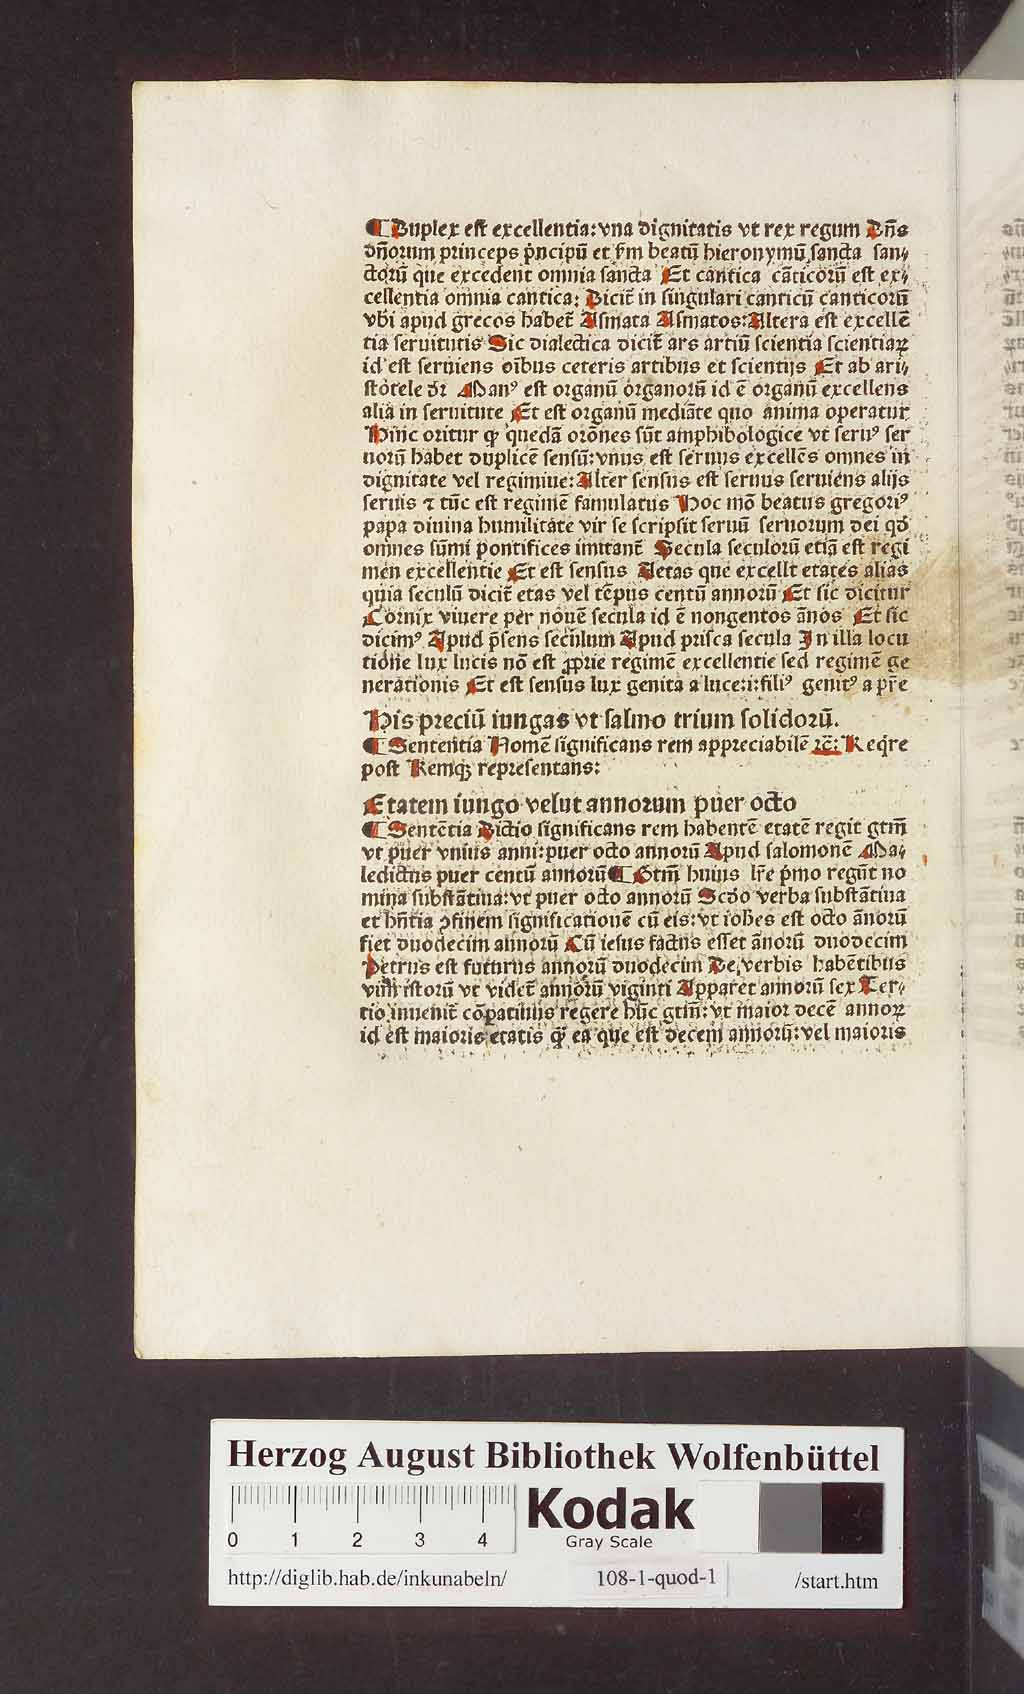 ¶ Duplex est excellentia: vna dignitatis vt rex regum Dñs
dñorum princeps p̀ncipũ et f̃m beatũ hieronymũ sancta san⸗
ctorũ que excedent omnia sancta Et cantica cãticorũ est ex⸗
cellentia omnia cantica: Dicit̃ in singulari canticũ canticorũ
vbi apud grecos habet̃ Asmata Asmatos: Altera est excellẽ
tia seruitutis Sic dialectica dicit̃ ars artiũ scientia scientiaꝝ
id est seruiens oĩbus ceteris artibus et scientijs Et ab ari⸗
stotele dr̃ Manꝰ est organũ organorũ id ẽ organũ excellens
alia in seruitute Et est organũ mediãte quo anima operatur
Hinc oritur ꝙ quedã orõnes sũt amphibologice vt seruꝰ ser
uorũ habet duplicẽ sensũ: vnus est seruus excellẽs omnes in
dignitate vel regimine: Alter sensus est seruus seruiens alijs
seruis ⁊ tũc est regimẽ famulatus Hoc mõ beatus gregoriꝰ
papa diuina humilitate vir se scripsit seruũ seruorum dei qđ
omnes sũmi pontifices imitant̃ Secula seculorũ etiã est regi
men excellentie Et est sensus Aetas que excellt etates alias
quia seculũ dicit̃ etas vel tẽpus centũ annorũ Et sic dicitur
Cornix viuere per nouẽ secula id ẽ nongentos ãnos Et sic
dicimꝰ Apud p̃sens seculum Apud prisca secula In illa locu
tione lux lucis nõ est ꝓprie regimẽ excellentie sed regimẽ ge
nerationis Et est sensus lux genita a luce: i: filiꝰ genitꝰ a pr̃e
His preciũ iungas vt salmo trium solidorũ.
¶ Sententia Nomẽ significans rem appreciabilẽ ⁊c̃: Reqr̃e
post Remqꝫ representans:
Etatem iungo velut annorum puer octo
¶ Sentẽtia Dictio significans rem habentẽ etatẽ regit gtm̃
vt puer vnius anni: puer octo annorũ Apud salomonẽ Ma⸗
ledictus puer centũ annorũ ¶ Gtm̃ huius lr̃e p̀mo regũt no
mina substãtiua: vt puer octo annorũ Scđo verba substãtiua
et hñtia ꝯfinem significationẽ cũ eis: vt ioh̃es est octo ãnorũ
fiet duodecim annorũ Cũ iesus factus esset ãnorũ duodecim
Petrus est futurus annorũ duodecim De verbis habẽtibus
vim istorũ vt videt̃ annorũ viginti Apparet annorũ sex Ter⸗
tio inuenit̃ cõpatiuus regere hũc gtm̃: vt maior decẽ annoꝝ
id est maioris etatis ꝙ̃ ea que est decem annorũ: vel maioris
Herzog August Bibliothek Wolfenbüttel
0 1 2 3 4
Kodak
Gray Scale
http://diglib.hab.de/inkunabeln/ 108-1-quod-1 /start.htm